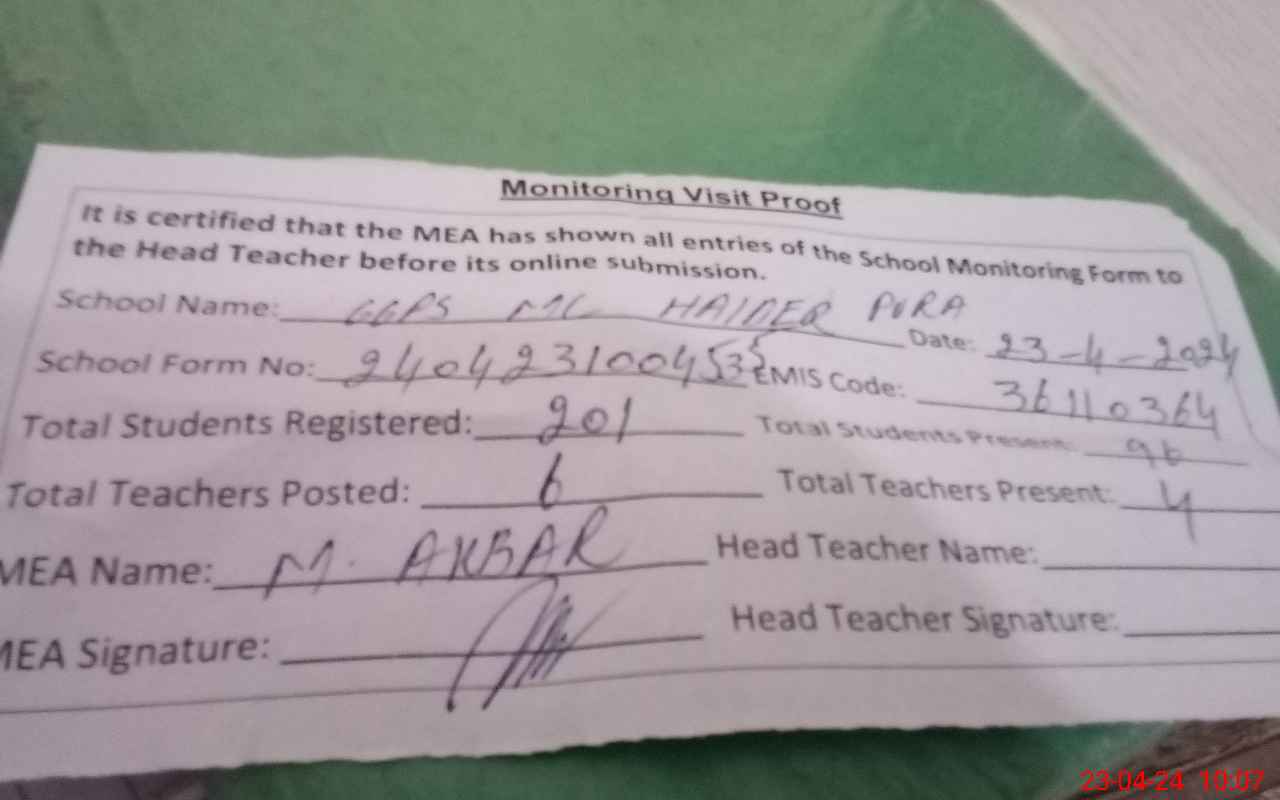 Monitoring Visit Proof
It is certified that the MEA has shown all entries of the School Monitoring Form to
the Head Teacher before its online submission.
School Name: GGPS MC HAIDER PURA
Date: 23-4-2024
School Form No: EMIS Code: 36110364
Total Students Registered: 201 Total Students Present: 96
Total Teachers Posted: 6 Total Teachers Present: 4
MEA Name: M. AKBAR Head Teacher Name:
MEA Signature: Head Teacher Signature:
23-04-24 10:07